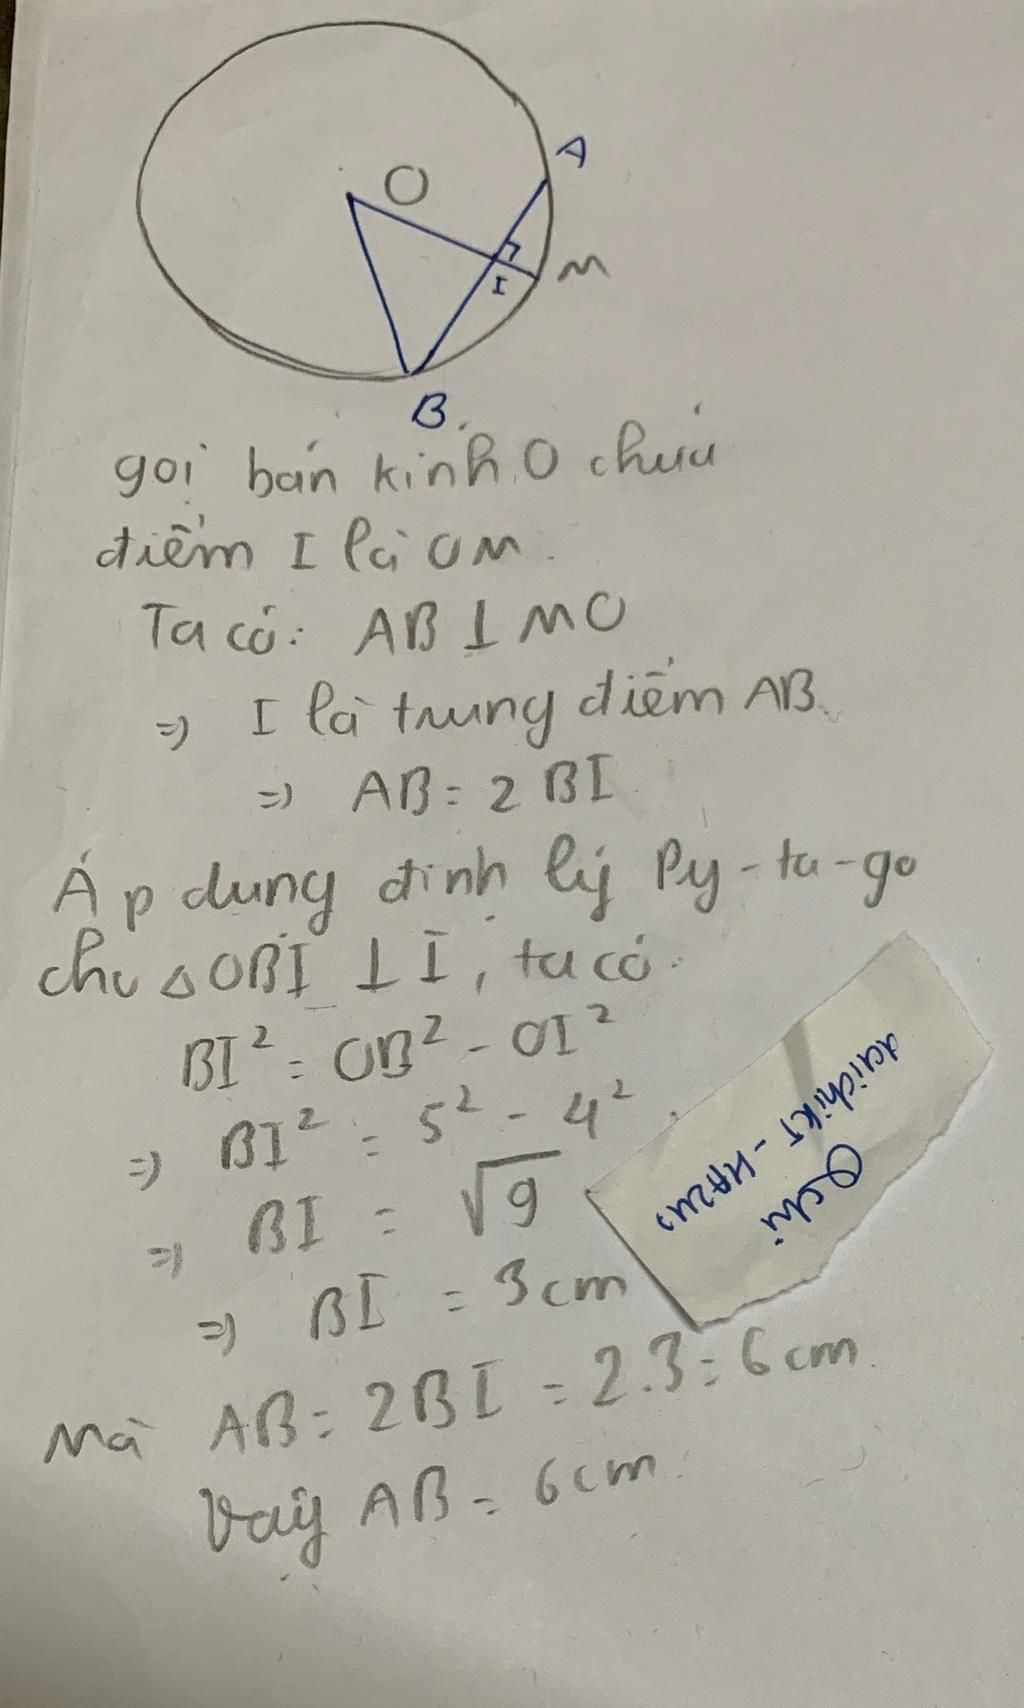 O
A
M
I
B
gọi bán kính O chứa
điểm I là OM.
Ta có: AB ⊥ MO
=> I là trung điểm AB.
=> AB = 2 BI
Áp dụng định lý Py-ta-go
cho △OBI ⊥ I, ta có:
BI² = OB² - OI²
=> BI² = 5² - 4²
=> BI = √9
=> BI = 3cm
Mà AB = 2BI = 2.3 = 6cm.
Vậy AB = 6cm.
Qchi